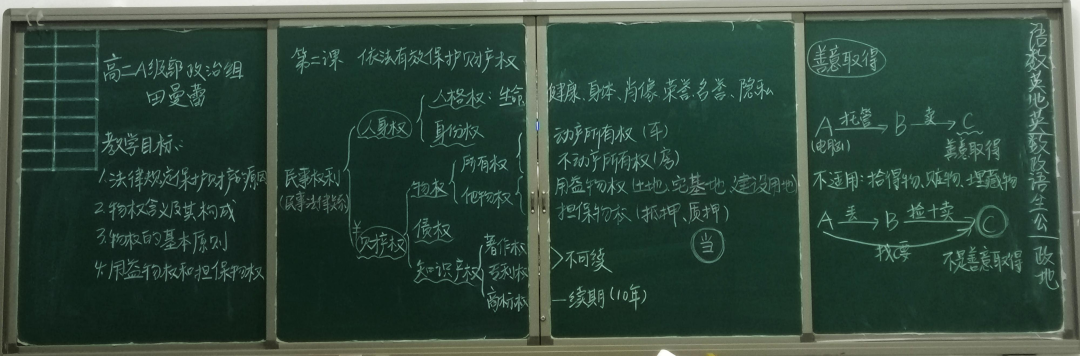 高二A级部政治组
田曼蕾
教学目标:
1.法律规定保护财产的原因
2.物权含义及其构成
3.物权的基本原则
4.用益物权和担保物权
第二课 依法有效保护财产权
民事权利
(民事法律关系)
人身权
人格权:生命、健康、身体、肖像、荣誉、名誉、隐私
身份权
财产权
物权
所有权
动产所有权(车)
不动产所有权(房)
他物权
用益物权(土地、宅基地、建设用地)
担保物权(抵押、质押)
当
债权
知识产权
著作权
专利权
不可续
商标权
续期(10年)
善意取得
A 托管 B 卖 C
(电脑)
善意取得
不适用:拾得物、赃物、埋藏物
A 丢 B 捡+卖 C
找要
不是善意取得
语数英地英数政语生公一政地